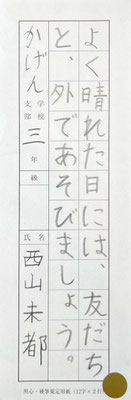 よく晴れた日には、友だち
と、外であそびましょう。
かげん
学校
支部
三年級
氏名
西山未都
照心・硬筆規定用紙(12字×2行)